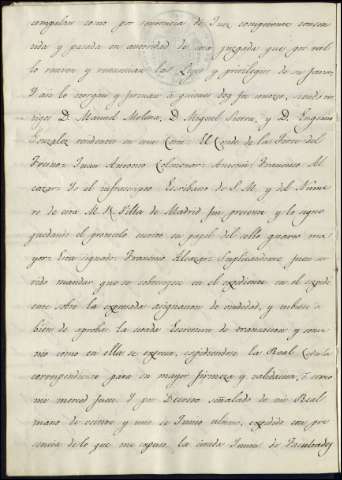 compelan como por sentencia de Juez competente consen
tida y pasada en autoridad de cosa juzgada que por tal
lo reciven y renuncian las Leyes y privilegios de su favor
Y asi lo otorgan y firman á quienes doy fee conozco, siendo tes
tigos D. Manuel Molina, D. Miguel Sierra, y D. Eugenio
Gonzalez residentes en esta Corte: El Conde de la Torre del
Fresno: Juan Antonio Colmenar: Antemi: Francisco Al
cazar: Yo el infrascripto Escribano de S. M. y del Nume
ro de esta M. H. Villa de Madrid fui presente y lo signo
quedando el protocolo escrito en papel del sello quarto ma
yor: Esta signado: Francisco Alcazar: Suplicandome fuese ser
vido mandar que se sobresea en el expediente en el expedi
ente sobre la expresada asignacion de viudedad, y tubiese á
bien de aprobar la citada Escritura de transaccion y conve
nio como en ella se expresa, expidiendose la Real Cedula
correspondiente para su mayor firmeza y validacion, ó como
mi merced fuese. Y por Decreto señalado de mi Real
mano de veinte y uno de Junio ultimo, expedido con pre
sencia de lo que me expuso la citada Junta de Facultades